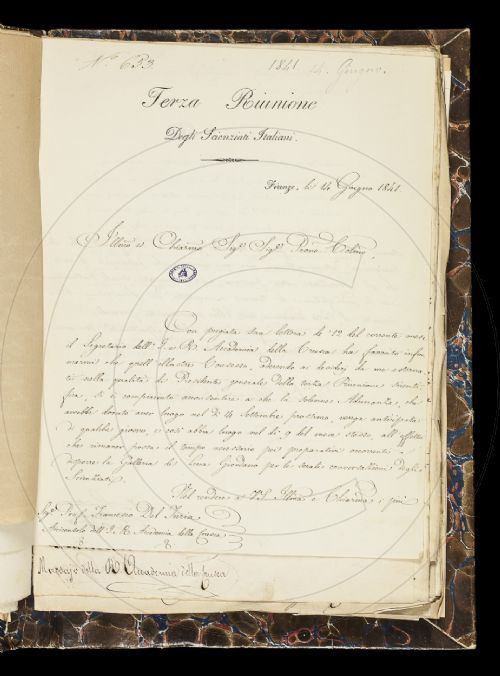 N.° 653. 1841 14. Giugno.
Terza Riunione
Degli Scienziati Italiani.
Firenze, li 14 Giugno 1841.
Illmo e Chiarmo Sigr Sigr Prone Colmo,
Con pregiata sua lettera de' 12 del corrente mese
il Segretario dell' I. e R. Accademia della Crusca ha favorito infor-
marmi che quell' illustre Consesso, aderendo ai desiderj da me esterna-
ti nella qualità di Presidente generale della terza Riunione Scienti-
fica, si è compiaciuto annunziare a che la solenne Adunanza, che
avrebbe dovuto aver luogo nel dì 14 Settembre prossimo, venga anticipata
di qualche giorno, e così abbia luogo nel dì 9 del mese stesso, all' effetto
che rimaner possa il tempo necessario pei preparativi occorrenti a
disporre la Galleria di Luca Giordano per le serali conversazioni degli
Scienziati.
Nel rendere a VS. Illma e Chiarma i più
Sigr Prof. Francesco Del Furia
Arciconsolo dell' I. R. Accademia della Crusca
Messaje della R. Accademia della Crusca